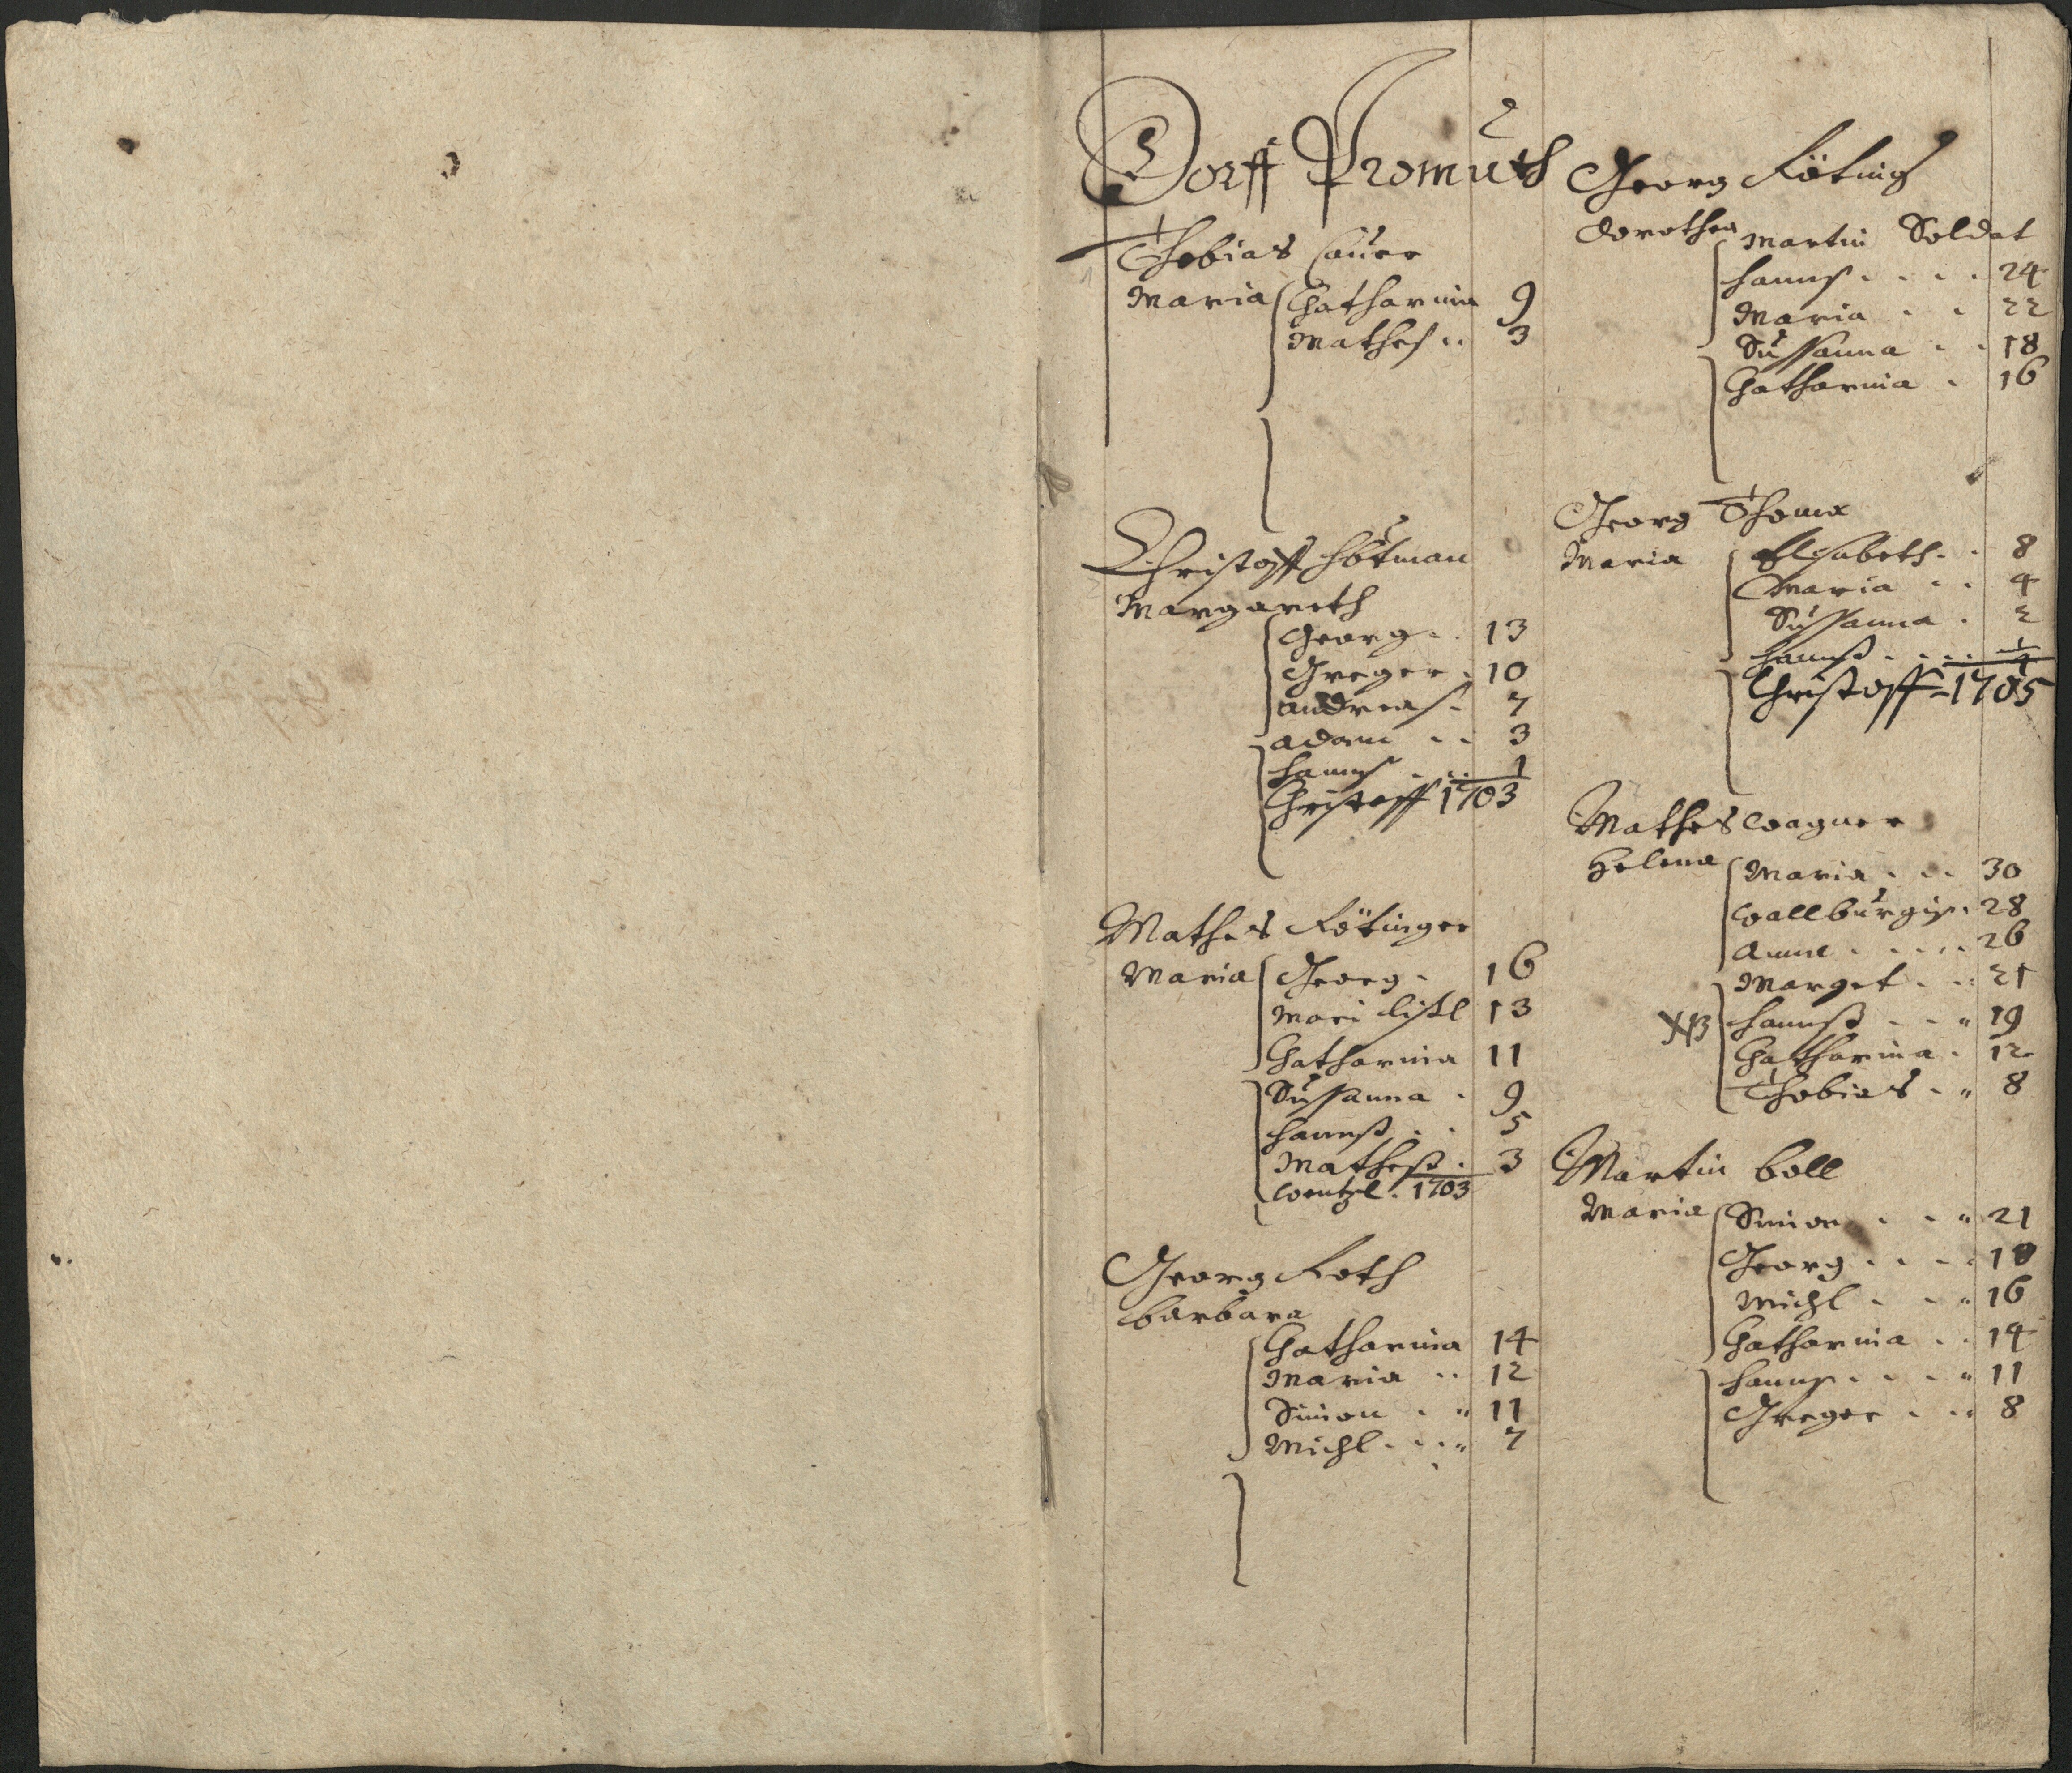 Dorff Promuth
Thobias Lauer
Maria Catharina 9
Mathes 3
Christoff Hötman
Margareth
Georg 13
Greger 10
Andreas 7
Adam 3
Hanns 1
Christoff 1703
Mathes Kötinger
Maria Georg 16
Mari Lisl 13
Catharina 11
Sussanna 9
Hannß 5
Matheß 3
Wentzl 1703
Georg Koth
Barbara
Catharina 14
Maria 12
Simon 11
Michl 7
Georg Köting
Dorothea Martin Soldat
Hanns 24
Maria 22
Sussanna 18
Catharina 16
Georg Thoma
Maria Elisabeth 8
Maria 4
Sussanna 2
Hannß 1/4
Christoff 1705
Mathes Wagner
Helena Maria 30
Wallburgis 28
Anna 26
Marget 21
XB Hannß 19
Catharina 12
Thobias 8
Martin Boll
Maria Simon 21
Georg 18
Michl 16
Catharina 14
Hanns 11
Greger 8